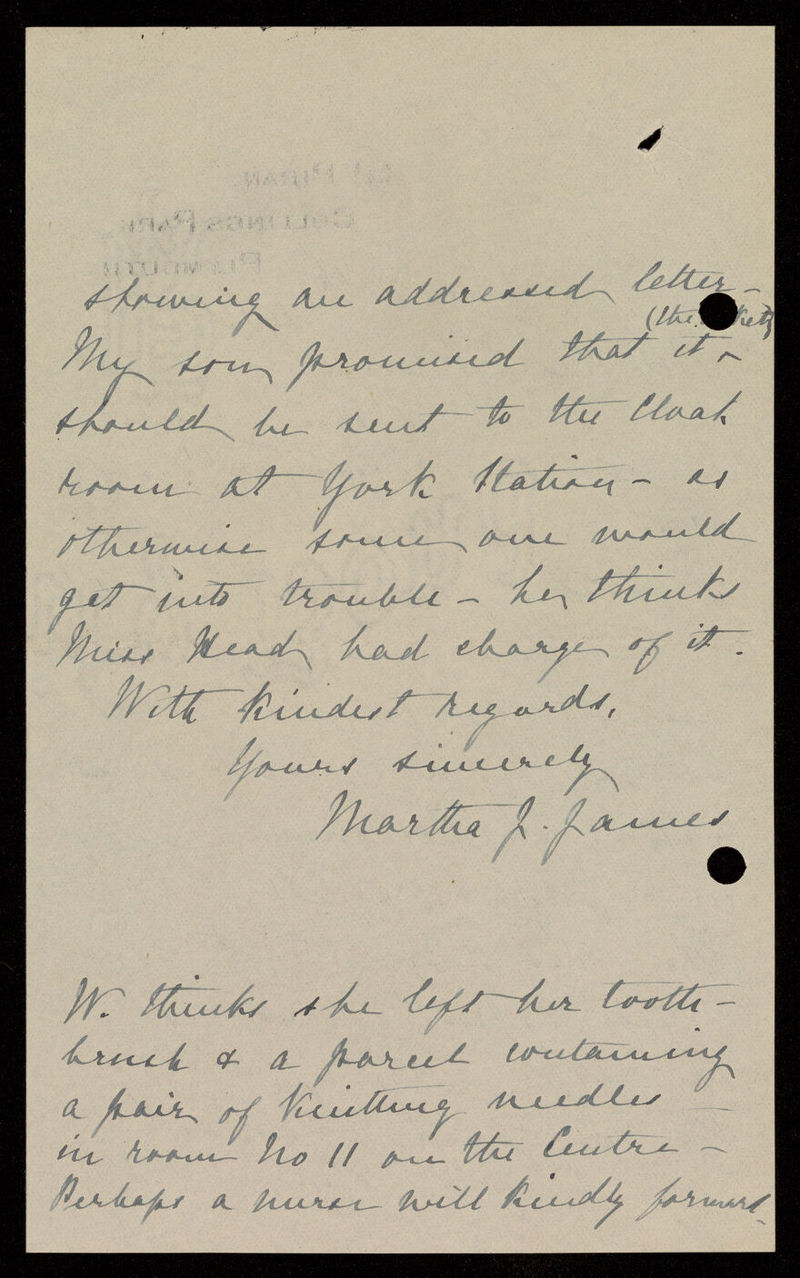 showing an addressed letter –
(the ket)
My son promised that it
should be sent to the Cloak
room at York Station – as
otherwise some one would
get into trouble – he thinks
Miss Head had charge of it.
With kindest regards,
Yours sincerely
Martha J. James
W. thinks she left her tooth-
brush & a parcel containing
a pair of Knitting needles –
in room No 11 on the Centre –
Perhaps a nurse will kindly forward –